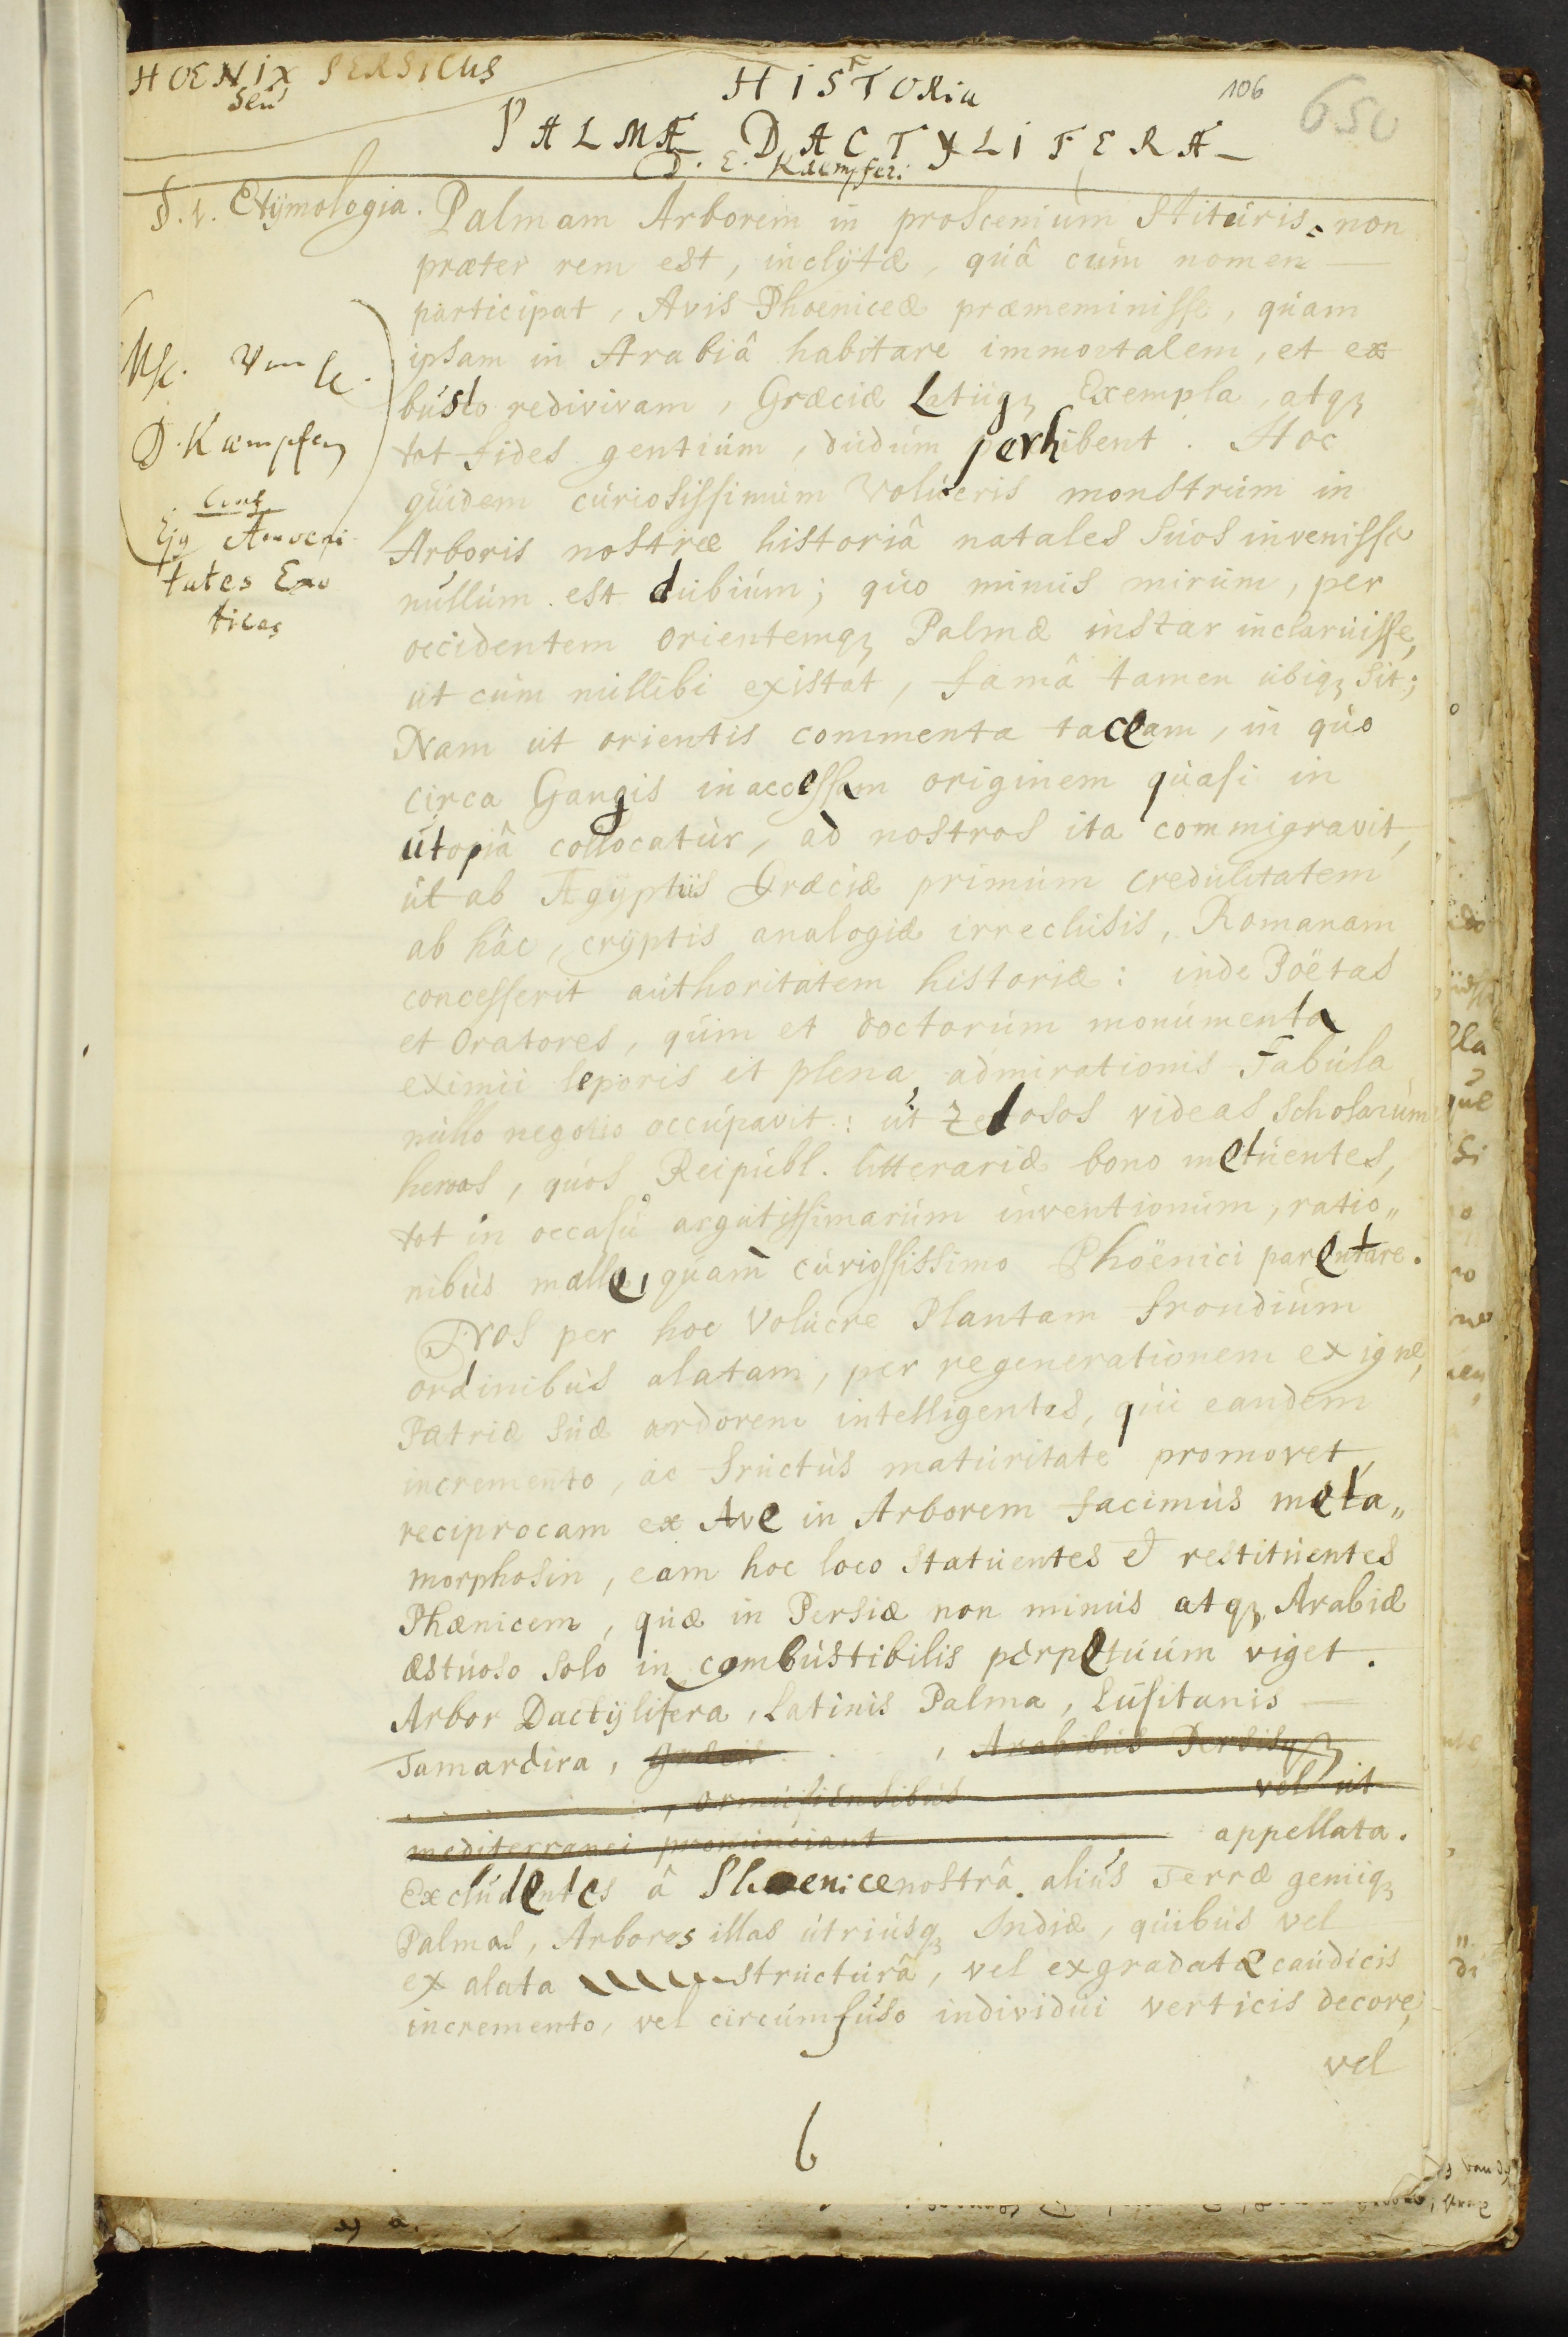 HOENIX PERSICUS
seu
HISTORia
106
650
PALMÆ DACTYLIFERÆ
D. E. Kaempferi
§. 1. Etÿmologia. Palmam Arborem in proscenium stituris non
præter rem est, inclÿtæ, quâ cum nomen
participat, Avis Phoeniceæ præmeminisse, quam
ipsam in Arabiâ habitare immortalem, et ex
busto redivivam, Græciæ Latiiqꝫ Exempla, atqꝫ
tot fides gentium, dudum perhibent. Hoc
quidem curiosissimum Volucris monstrum in
Arboris nostræ historiâ natales suos invenisse
nullum est dubium; quo minus mirum, per
occidentem orientemqꝫ Palmæ instar inclaruisse,
ut cum nullibi existat, famâ tamen ubiqꝫ sit;
Nam ut orientis commenta taceam, in quo
circa Gangis inaccessam originem quasi in
utopiâ collocatur, ad nostros ita commigravit,
ut ab Ægÿptiis Græciæ primum credulitatem
ab hâc, crÿptis analogiæ irreclusis, Romanam
concesserit authoritatem historiæ: inde Poëtas
et Oratores, quin et doctorum monumenta
eximii leporis et plena admirationis Fabula
nullo negotio occupavit: ut zelosos videas scholarum
heroas, quos Reipubl. litterariæ bono metuentes,
tot in occasu argutissimarum inventionum, ratio„
nibus malle, quam curiossissimo Phöenici parentare.
Nos per hoc Volucre Plantam frondium
ordinibus alatam, per regenerationem ex igne,
Patriæ suæ ardorem intelligentes, qui eandem
incremento, ac fructus maturitate promovet,
reciprocam ex Ave in Arborem facimus meta„
morphosin, eam hoc loco statuentes & restituentes
Phænicem, quæ in Persiæ non minus atqꝫ Arabiæ
æstuoso solo in combustibilis perpetuum viget.
Arbor Dactÿlifera, Latinis Palma, Lusitanis
Tamardira, Græcis , Arabibus Persisqꝫ
, ormusiensibus vel ut
mediterranei pronunciant appellata.
Excludentes â Phoenice nostrâ alius Terræ geniiqꝫ
Palmas, Arbores illas utriusqꝫ Indiæ, quibus vel
ex alata structurâ, vel ex gradatæ caudicis
incremento, vel circumfuso individui verticis decore,
vel
6
Msc.
D. Kampfer
conf
Ejq Amoeni
tates Exo
ticas